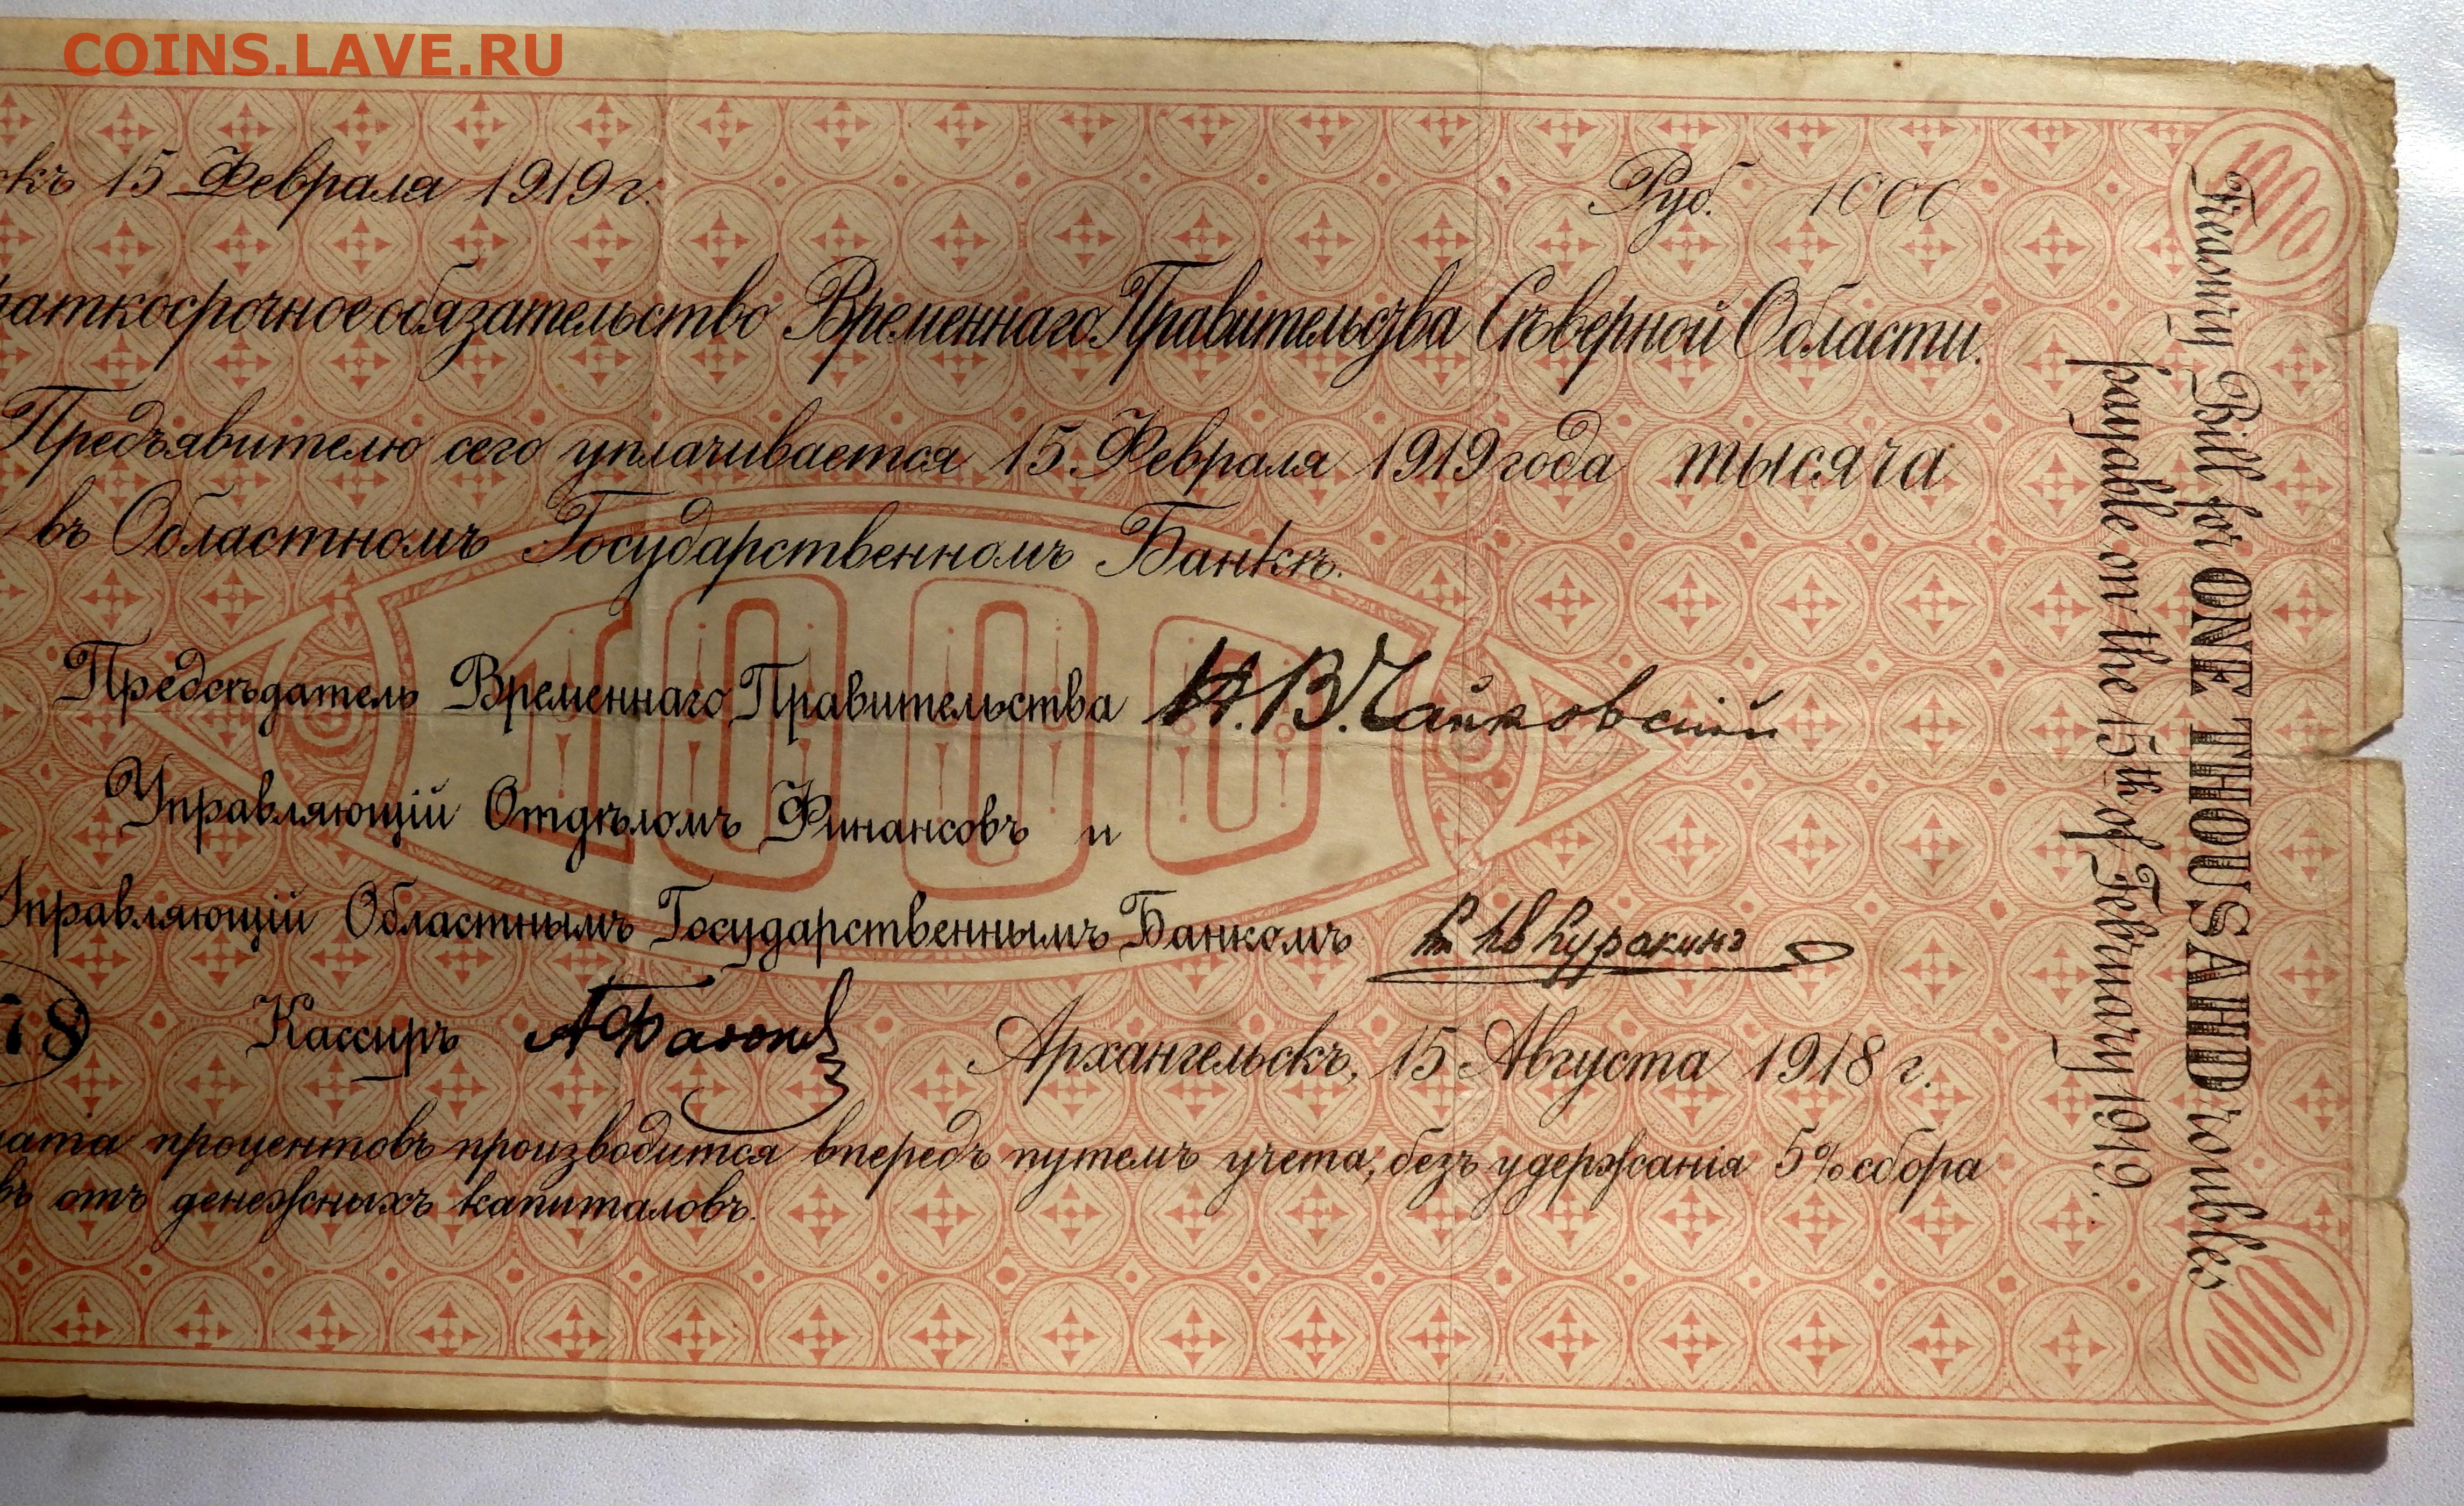 COINS.LAVE.RU
скъ 15 Февраля 1919 г. Руб. 1000
раткосрочное обязательство Временнаго Правительства Сѣверной Области.
Предъявителю сего уплачивается 15 Февраля 1919 года тысяча
въ Областномъ Государственномъ Банкѣ.
1000
Предсѣдатель Временнаго Правительства Н.В.Чайковскій
Управляющій Отдѣломъ Финансовъ и
Управляющій Областнымъ Государственнымъ Банкомъ Куракинъ
78 Кассиръ
Архангельскъ, 15 Августа 1918 г.
лата процентовъ производится впередъ путемъ учета, безъ удержанія 5% сбора
въ отъ денежныхъ капиталовъ.
Treasury Bill for ONE THOUSAND roubles
payable on the 15th of February 1919.
1000
1000